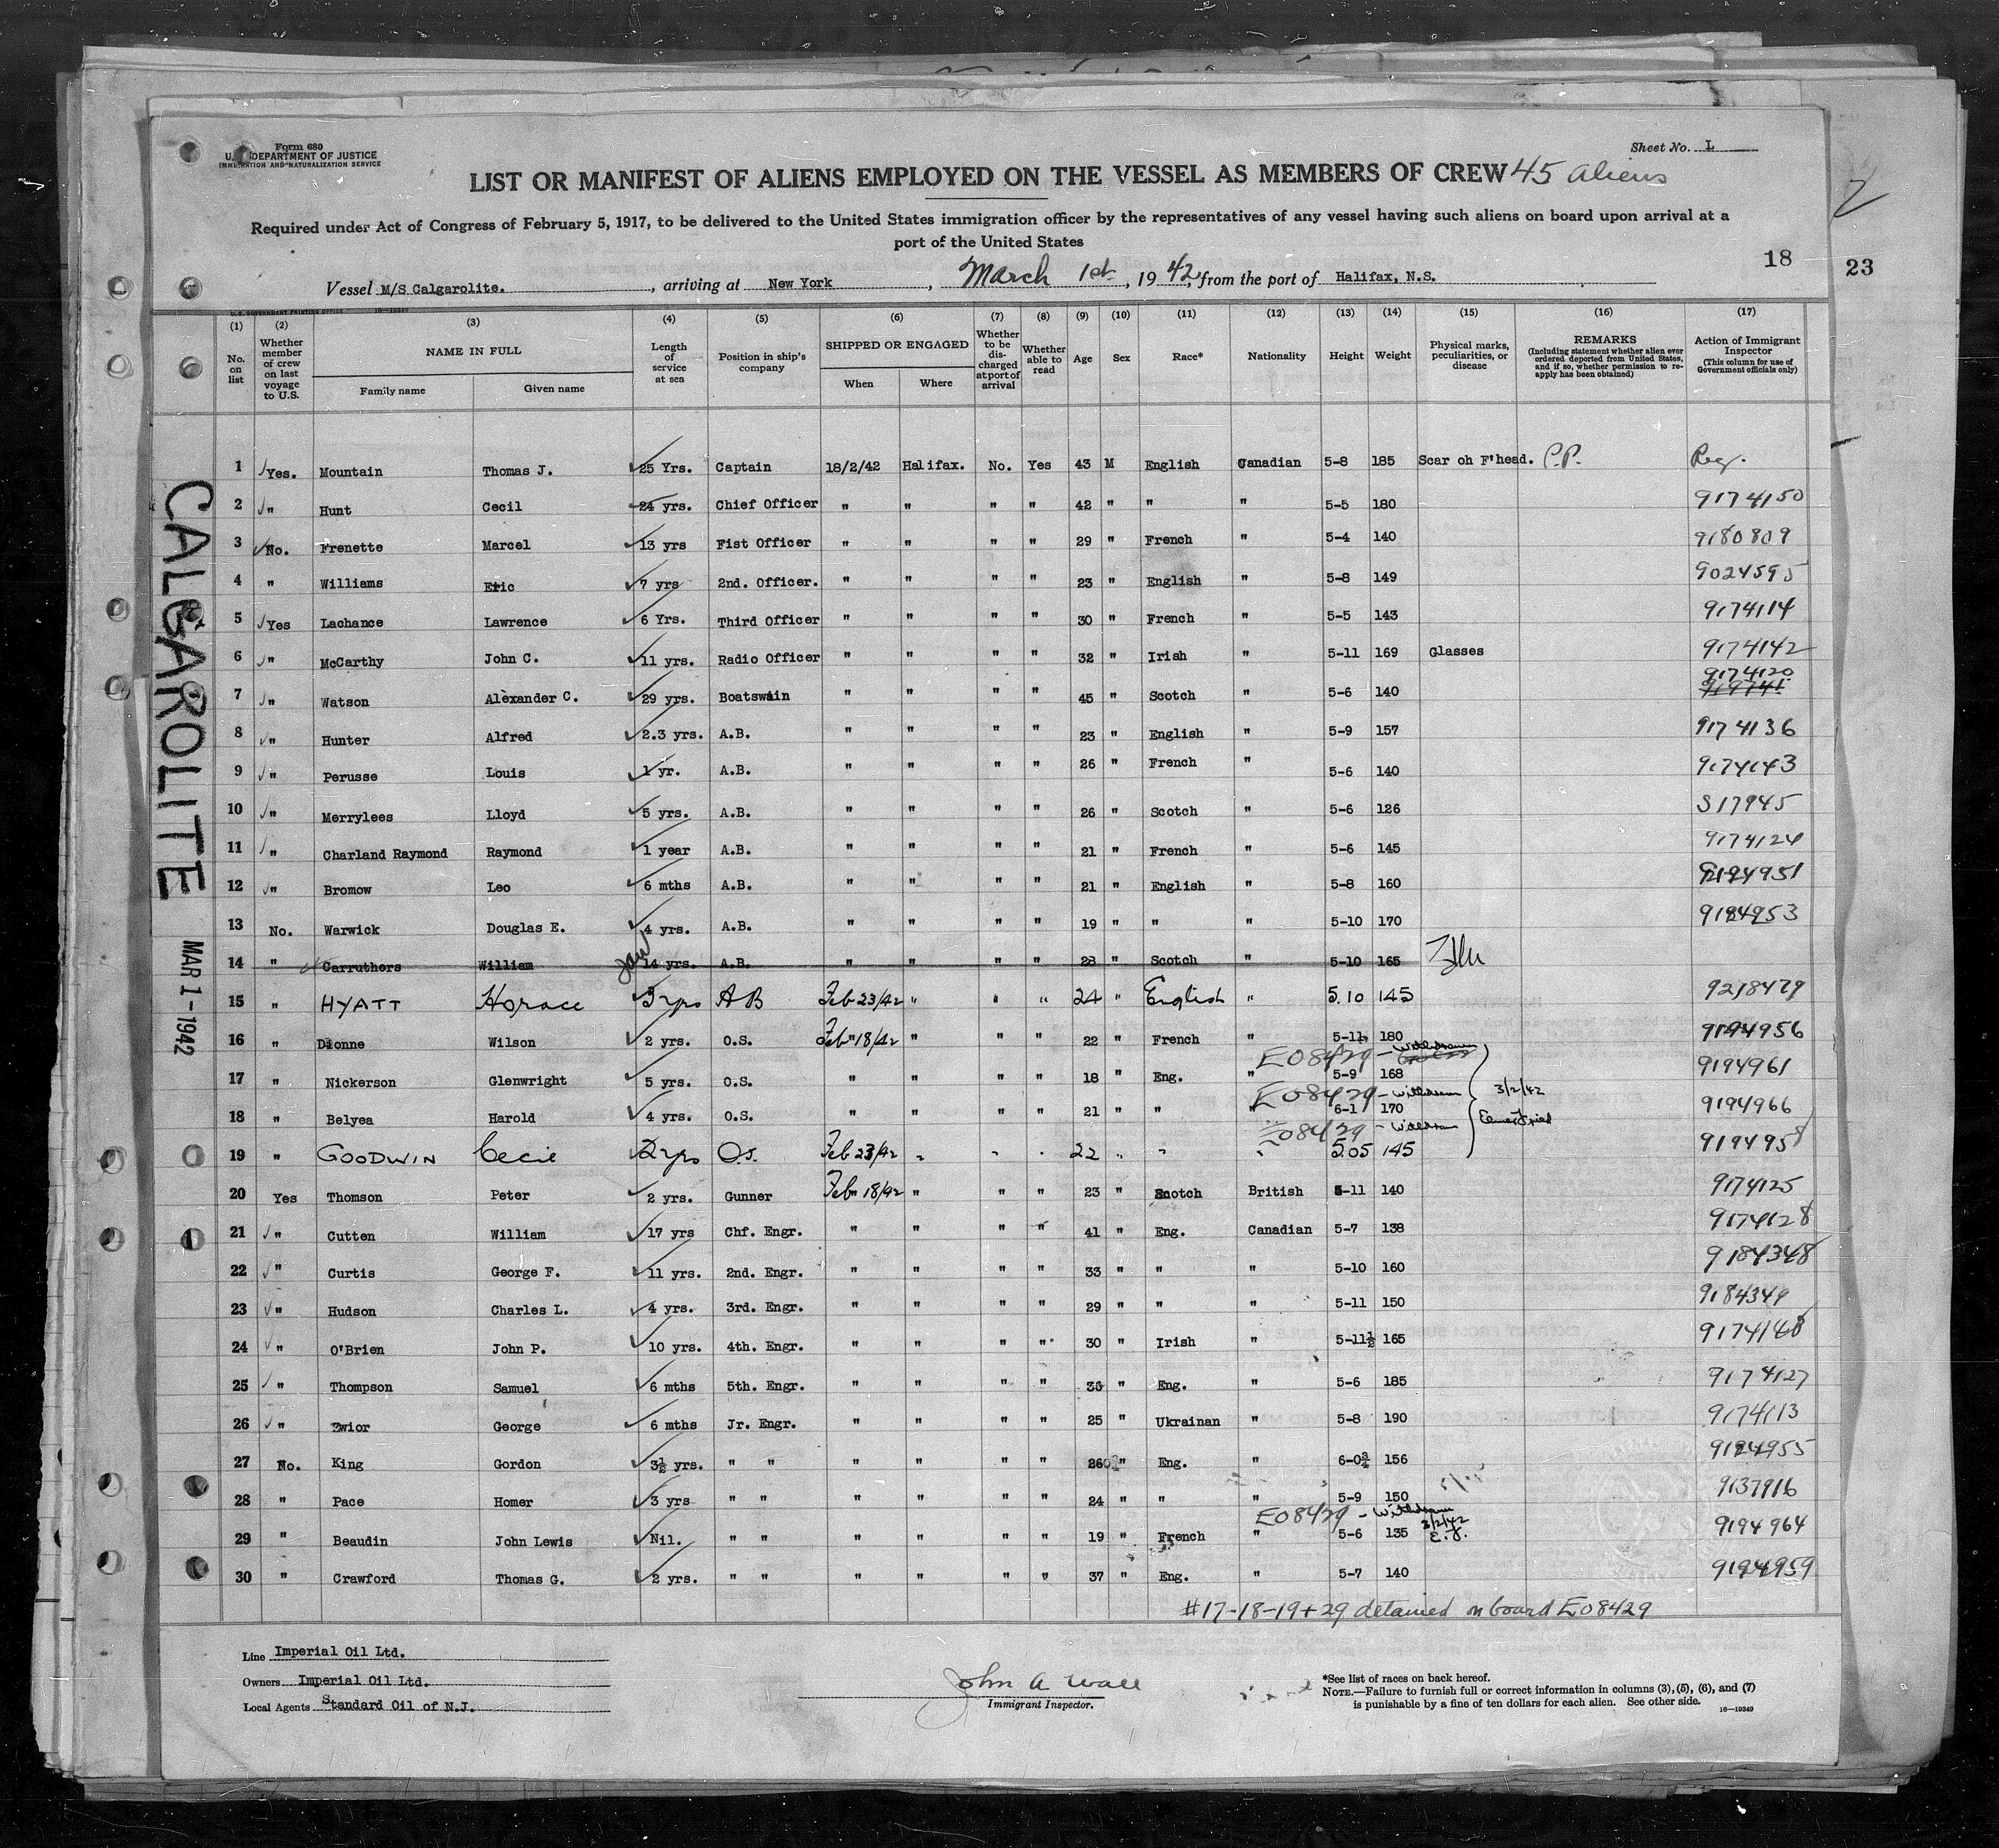 Form 680
U. S. DEPARTMENT OF JUSTICE
IMMIGRATION AND NATURALIZATION SERVICE
Sheet No. L
LIST OR MANIFEST OF ALIENS EMPLOYED ON THE VESSEL AS MEMBERS OF CREW 45 aliens
2
Required under Act of Congress of February 5, 1917, to be delivered to the United States immigration officer by the representatives of any vessel having such aliens on board upon arrival at a
port of the United States
18
23
Vessel M/S Calgarolite. , arriving at New York , March 1st , 19 42, from the port of Halifax, N.S.
U.S. GOVERNMENT PRINTING OFFICE 16-19349
(1) (2) (3) (4) (5) (6) (7) (8) (9) (10) (11) (12) (13) (14) (15) (16) (17)
No. on list
Whether member of crew on last voyage to U.S.
NAME IN FULL
Family name
Given name
Length of service at sea
Position in ship's company
SHIPPED OR ENGAGED
When
Where
Whether to be discharged at port of arrival
Whether able to read
Age
Sex
Race*
Nationality
Height
Weight
Physical marks, peculiarities, or disease
REMARKS
(Including statement whether alien ever ordered deported from United States, and if so, whether permission to reapply has been obtained)
Action of Immigrant Inspector
(This column for use of Government officials only)
1 Yes. Mountain Thomas J. 25 Yrs. Captain 18/2/42 Halifax. No. Yes 43 M English Canadian 5-8 185 Scar oh F'head. P.P. Reg.
2 " Hunt Cecil 24 yrs. Chief Officer " " " " 42 " " " 5-5 180 9174150
3 No. Frenette Marcel 13 yrs Fist Officer " " " " 29 " French " 5-4 140 9180809
4 " Williams Eric 7 yrs 2nd. Officer. " " " " 23 " English " 5-8 149 9024595
5 Yes Lachance Lawrence 6 Yrs. Third Officer " " " " 30 " French " 5-5 143 9174114
6 " McCarthy John C. 11 yrs. Radio Officer " " " " 32 " Irish " 5-11 169 Glasses 9174142
7 " Watson Alexander C. 29 yrs. Boatswain " " " " 45 " Scotch " 5-6 140 9174120
8 " Hunter Alfred 2.3 yrs. A.B. " " " " 23 " English " 5-9 157 9174136
9 " Perusse Louis 1 yr. A.B. " " " " 26 " French " 5-6 140 9174143
10 " Merrylees Lloyd 5 yrs. A.B. " " " " 26 " Scotch " 5-6 126 S17945
11 " Charland Raymond Raymond 1 year A.B. " " " " 21 " French " 5-6 145 9174124
12 " Bromow Leo 6 mths A.B. " " " " 21 " English " 5-8 160 9194951
13 No. Warwick Douglas E. 4 yrs. A.B. " " " " 19 " " " 5-10 170 9194953
14 " Carruthers William 14 yrs. A.B. " " " " 28 " Scotch " 5-10 165
15 " HYATT Horace 3 yrs AB Feb 23/42 " " " 24 " English " 5.10 145 9218479
16 " Dionne Wilson 2 yrs. O.S. Feb" 18/42 " " " 22 " French " 5-11 180 9194956
E08429 - Withdrawn
17 " Nickerson Glenwright 5 yrs. O.S. " " " " 18 " Eng. " 5-9 168 9194961
E08429 - Withdrawn 3/2/42
18 " Belyea Harold 4 yrs. O.S. " " " " 21 " " " 6-1 170 9194966
E08429 - Withdrawn
19 " GOODWIN Cecil 2 yrs O.S. Feb 23/42 " " " 22 " " " 5.05 145 9194958
20 Yes Thomson Peter 2 yrs. Gunner Feb" 18/42 " " " 23 " Scotch British 5-11 140 9174125
21 " Cutten William 17 yrs Chf. Engr. " " " " 41 " Eng. Canadian 5-7 138 9174128
22 " Curtis George F. 11 yrs. 2nd. Engr. " " " " 33 " " " 5-10 160 9184348
23 " Hudson Charles L. 4 yrs. 3rd. Engr. " " " " 29 " " " 5-11 150 9184349
24 " O'Brien John P. 10 yrs. 4th. Engr. " " " " 30 " Irish " 5-11½ 165 9174148
25 " Thompson Samuel 6 mths 5th. Engr. " " " " 36 " Eng. " 5-6 185 9174127
26 " Zwior George 6 mths Jr. Engr. " " " " 25 " Ukrainan " 5-8 190 9174113
27 No. King Gordon 3½ yrs. " " " " " " 26 " Eng. " 6-0¾ 156 9194955
28 " Pace Homer 3 yrs " " " " " " 24 " " " 5-9 150 9137916
E08429 - Withdrawn 3/2/42 E.F.
29 " Beaudin John Lewis Nil. " " " " " " 19 " French " 5-6 135 9194964
30 " Crawford Thomas G. 2 yrs. " " " " " " 37 " Eng. " 5-7 140 9194959
#17-18-19+29 detained on board E08429
CALGAROLITE
MAR 1 - 1942
Line Imperial Oil Ltd.
Owners Imperial Oil Ltd.
Local Agents Standard Oil of N.J.
John A Wall
Immigrant Inspector.
*See list of races on back hereof.
NOTE.—Failure to furnish full or correct information in columns (3), (5), (6), and (7)
is punishable by a fine of ten dollars for each alien. See other side.
16-19349